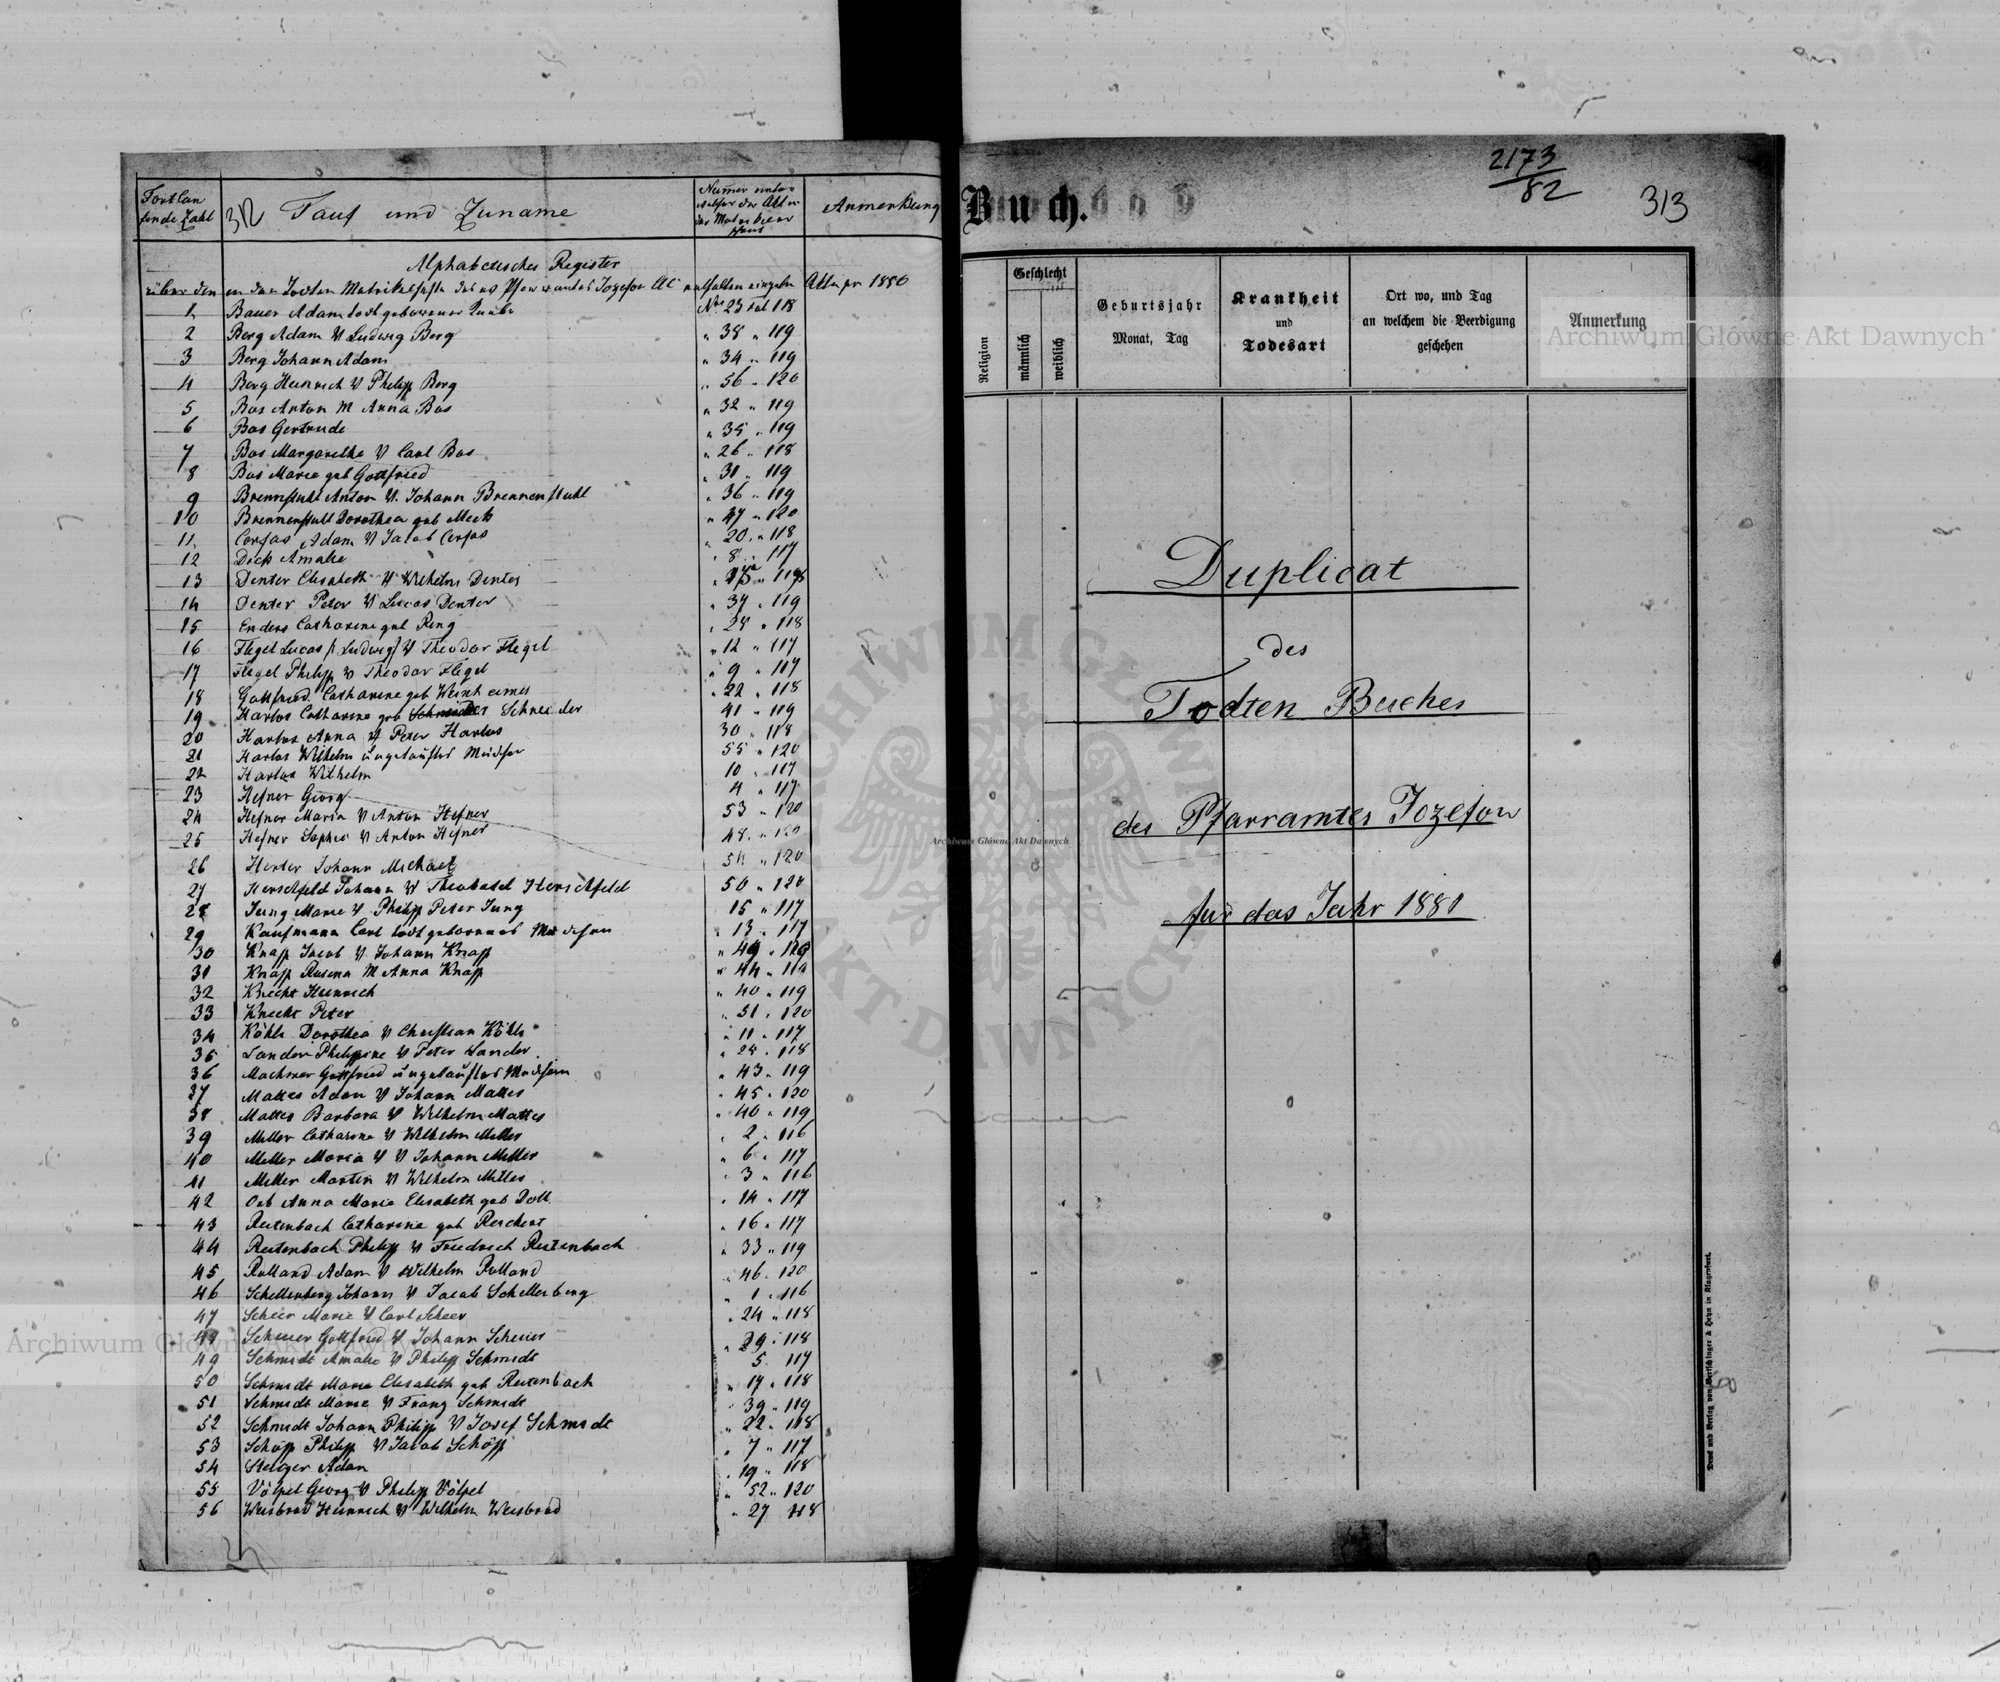 Fortlau
fende Zahl
312
Tauf und Zuname
Numer unter
welcher der Akt in
der Matrik
Anmerkung
Alphabetisches Register
über den in den Todten Matrikel des Pfarramtes Jozefow enthalten einzeln Akten pr 1880
1 Bauer Adam todtgeborener Knabe No 23 Fol 118
2 Berg Adam V Ludwig Berg " 38 " 119
3 Berg Johann Adam " 34 " 119
4 Berg Heinrich V Philipp Berg " 56 " 120
5 Bos Anton M Anna Bos " 32 " 119
6 Bos Gertrude " 35 " 119
7 Bos Margarethe V Carl Bos " 26 " 118
8 Bos Marie geb Gottfried " 31 " 119
9 Brennstuhl Anton V. Johann Brennenstuhl " 36 " 119
10 Brennenstuhl Dorothea geb Meck " 47 " 120
11 Corfas Adam V Jacob Corfas " 20 " 118
12 Dick Amalie " 8 " 117
13 Denter Elisabeth V Wilhelm Denter " 118
14 Denter Peter V Lucas Denter " 37 " 119
15 Enders Catharine geb Ring " 28 " 118
16 Flegel Lucas /: Ludwig/ V Theodor Flegel " 12 " 117
17 Flegel Philipp V Theodor Flegel " 9 " 117
18 Gottfried Catharine geb Weinheimer " 22 " 118
19 Harlos Catharine geb Schneider 41 " 119
20 Harlos Anna V Peter Harlos 30 " 118
21 Harlos Wilhelm ungetauftes Mädchen 55 " 120
22 Harlos Wilhelm 10 " 117
23 Hefner Georg 4 " 117
24 Hefner Maria V Anton Hefner 53 " 120
25 Hefner Sophie V Anton Hefner 48 " 120
26 Herter Johann Michael 54 " 120
27 Herschfeld Johann V Theobald Herschfeld 50 " 120
28 Jung Marie V Philipp Peter Jung 15 " 117
29 Kaufmann Carl todtgeborenes Mädchen " 13 " 117
30 Knap Jacob V Johann Knapp " 49 " 120
31 Knap Rosina M Anna Knap " 44 " 119
32 Knecht Heinrich " 40 " 119
33 Knecht Peter " 51 " 120
34 Köhle Dorothea V Christian Köhle " 11 " 117
35 Lander Philippine V Peter Lander " 25 " 118
36 Machmer Gottfried ungetauftes Mädchen " 43 " 119
37 Mattes Adam V Johann Mattes " 45 " 120
38 Mattes Barbara V Wilhelm Mattes " 40 " 119
39 Miller Catharine V Wilhelm Miller " 2 " 116
40 Miller Maria V V Johann Miller " 6 " 117
41 Miller Martin V Wilhelm Miller " 3 " 116
42 Oeb Anna Maria Elisabeth geb Doll " 14 " 117
43 Reitenbach Catharine geb Reichert " 16 " 117
44 Reitenbach Philipp V Friedrich Reitenbach " 33 " 119
45 Rulland Adam V Wilhelm Rulland " 46 " 120
46 Schellenberg Johann V Jacob Schellenberg " 1 " 116
47 Scheer Marie V Carl Scheer " 24 " 118
48 Scheuer Gottfried V Johann Scheuer " 29 " 118
49 Schmidt Amalie V Philipp Schmidt 5 " 117
50 Schmidt Marie Elisabeth geb Reitenbach " 17 " 118
51 Schmidt Marie V Franz Schmidt " 39 " 119
52 Schmidt Johann Philipp V Josef Schmidt " 22 " 118
53 Schöpp Philipp V Jacob Schöpp " 7 " 117
54 Steiger Adam " 19 " 118
55 Völpel Georg V Philipp Völpel " 52 " 120
56 Weisbrod Heinrich V Wilhelm Weisbrod " 27 118
Buch.
2173
82
313
Religion
Geschlecht
männlich
weiblich
Geburtsjahr
Monat, Tag
Krankheit
und
Todesart
Ort wo, und Tag
an welchem die Beerdigung
geschehen
Anmerkung
Duplicat
des
Todten Buches
des Pfarramtes Jozefow
für das Jahr 1880
Druck und Verlag von Bertschinger & Heyn in Klagenfurt.
Archiwum Główne Akt Dawnych
Archiwum Główne Akt Dawnych
Archiwum Główne Akt Dawnych
ARCHIWUM GŁÓWNE AKT DAWNYCH